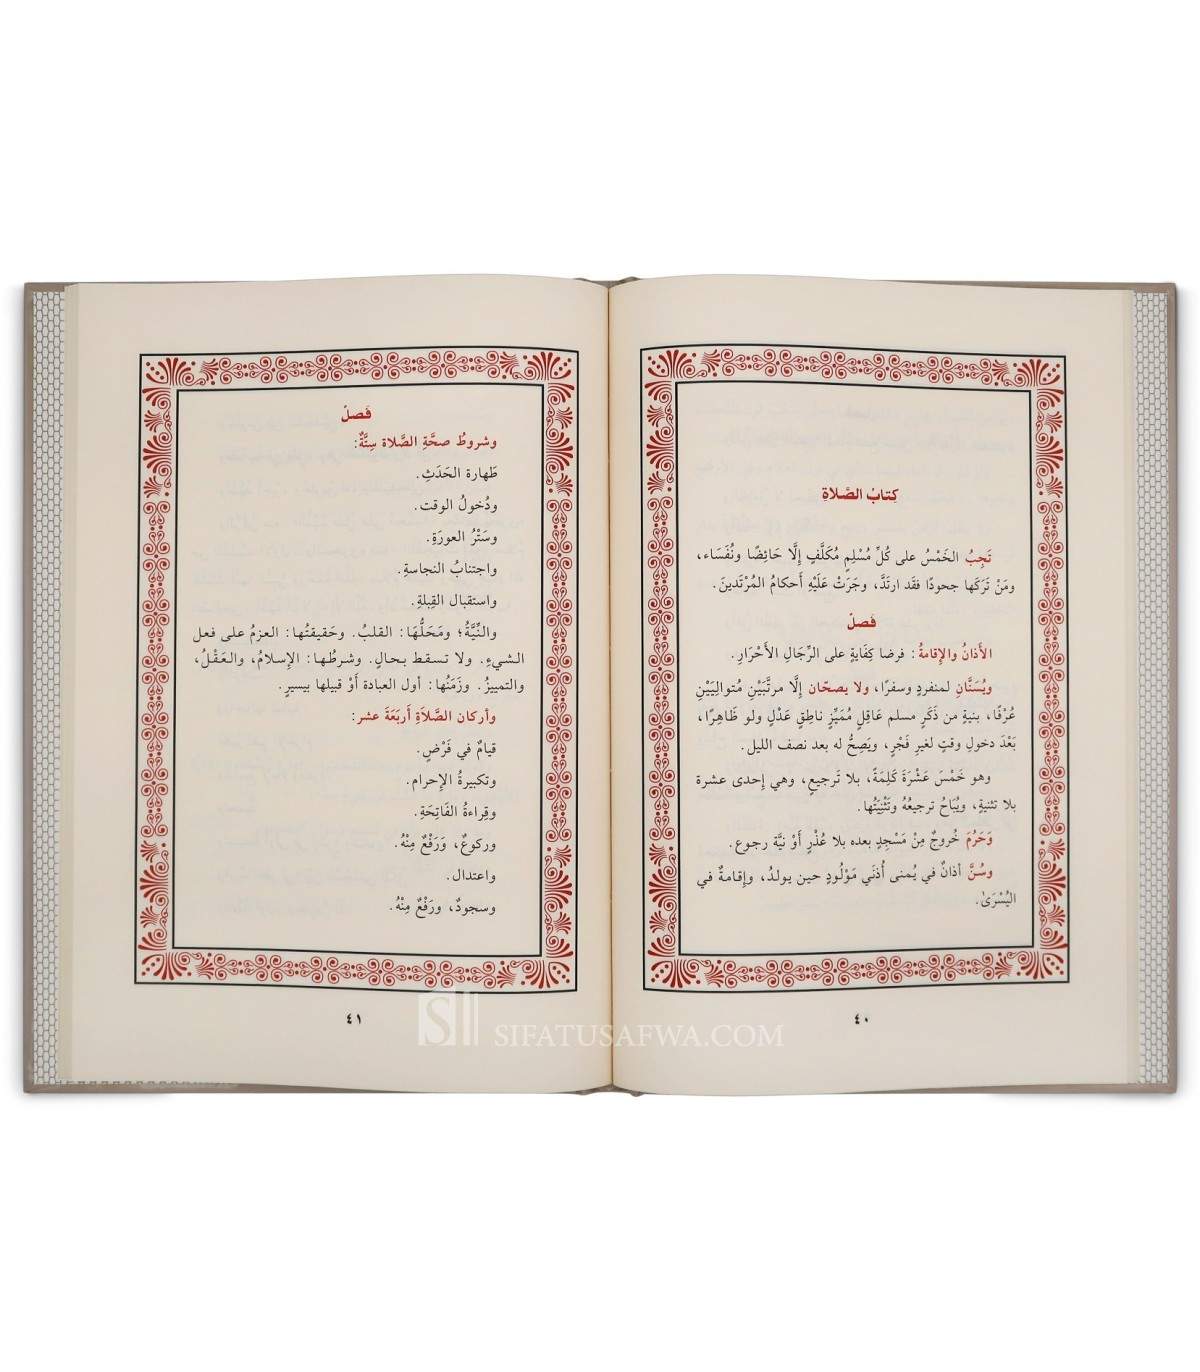 كِتابُ الصَّلاةِ
تَجِبُ الخَمْسُ على كُلِّ مُسْلِمٍ مُكَلَّفٍ إِلَّا حَائِضًا ونُفَسَاء،
ومَنْ تَرَكَها جحودًا فقَد ارتَدَّ، وجَرَتْ عَلَيْهِ أَحكامُ المُرْتَدين.
فَصلٌ
الأَذانُ والإِقامةُ: فرضا كِفَايةٍ على الرِّجَالِ الأَحْرَارِ.
ويُسَنَّانِ لمنفردٍ وسفرًا، ولا يصحّان إِلَّا مرتَّبَيْنِ مُتوالِيَيْنِ
عُرْفًا، بنيةٍ من ذَكَرٍ مسلم عَاقِلٍ مُمَيِّزٍ ناطِقٍ عَدْلٍ ولو ظَاهِرًا،
بَعْدَ دخولِ وقتٍ لغيرِ فَجْرٍ، ويَصِحُّ له بعد نصف الليل.
وهو خَمْسَ عَشْرَةَ كَلِمَةً، بلا تَرجيعٍ، وهي إِحدى عشرة
بلا تثنيةٍ، ويُبَاحُ ترجيعُهُ وتَثْنِيَتُها.
وَحَرُمَ خُروجٌ مِنْ مَسْجِدٍ بعده بلا عُذْرٍ أَوْ نيَّة رجوع.
وسُنَّ أذانٌ في يُمنى أُذُنَي مَوْلُودٍ حين يولدُ، وإِقامةٌ في
اليُسْرَىٰ.
٤٠
فَصلٌ
وشروطُ صحَّةِ الصَّلاة سِتَّةٌ:
طَهارة الحَدَثِ.
ودُخولُ الوقت.
وسَتْرُ العورَةِ.
واجتنابُ النجاسةِ.
واستقبال القِبلةِ.
والنِّيَّةُ؛ ومَحَلُّهَا: القلبُ. وحَقيقتُها: العزمُ على فعل
الشيءِ. ولا تسقط بحالٍ. وشرطُها: الإِسلامُ، والعَقْلُ،
والتمييزُ. وزَمَنُها: أول العبادة أَوْ قبيلها بيسيرٍ.
وأركان الصَّلاَةِ أَربَعَةَ عشر:
قيامٌ في فَرْضٍ.
وتكبيرةُ الإِحرام.
وقِراءةُ الفَاتِحَةِ.
وركوعٌ، وَرَفْعٌ مِنْهُ.
واعتدال.
وسجودٌ، ورَفْعٌ مِنْهُ.
٤١
SIFATUSAFWA.COM